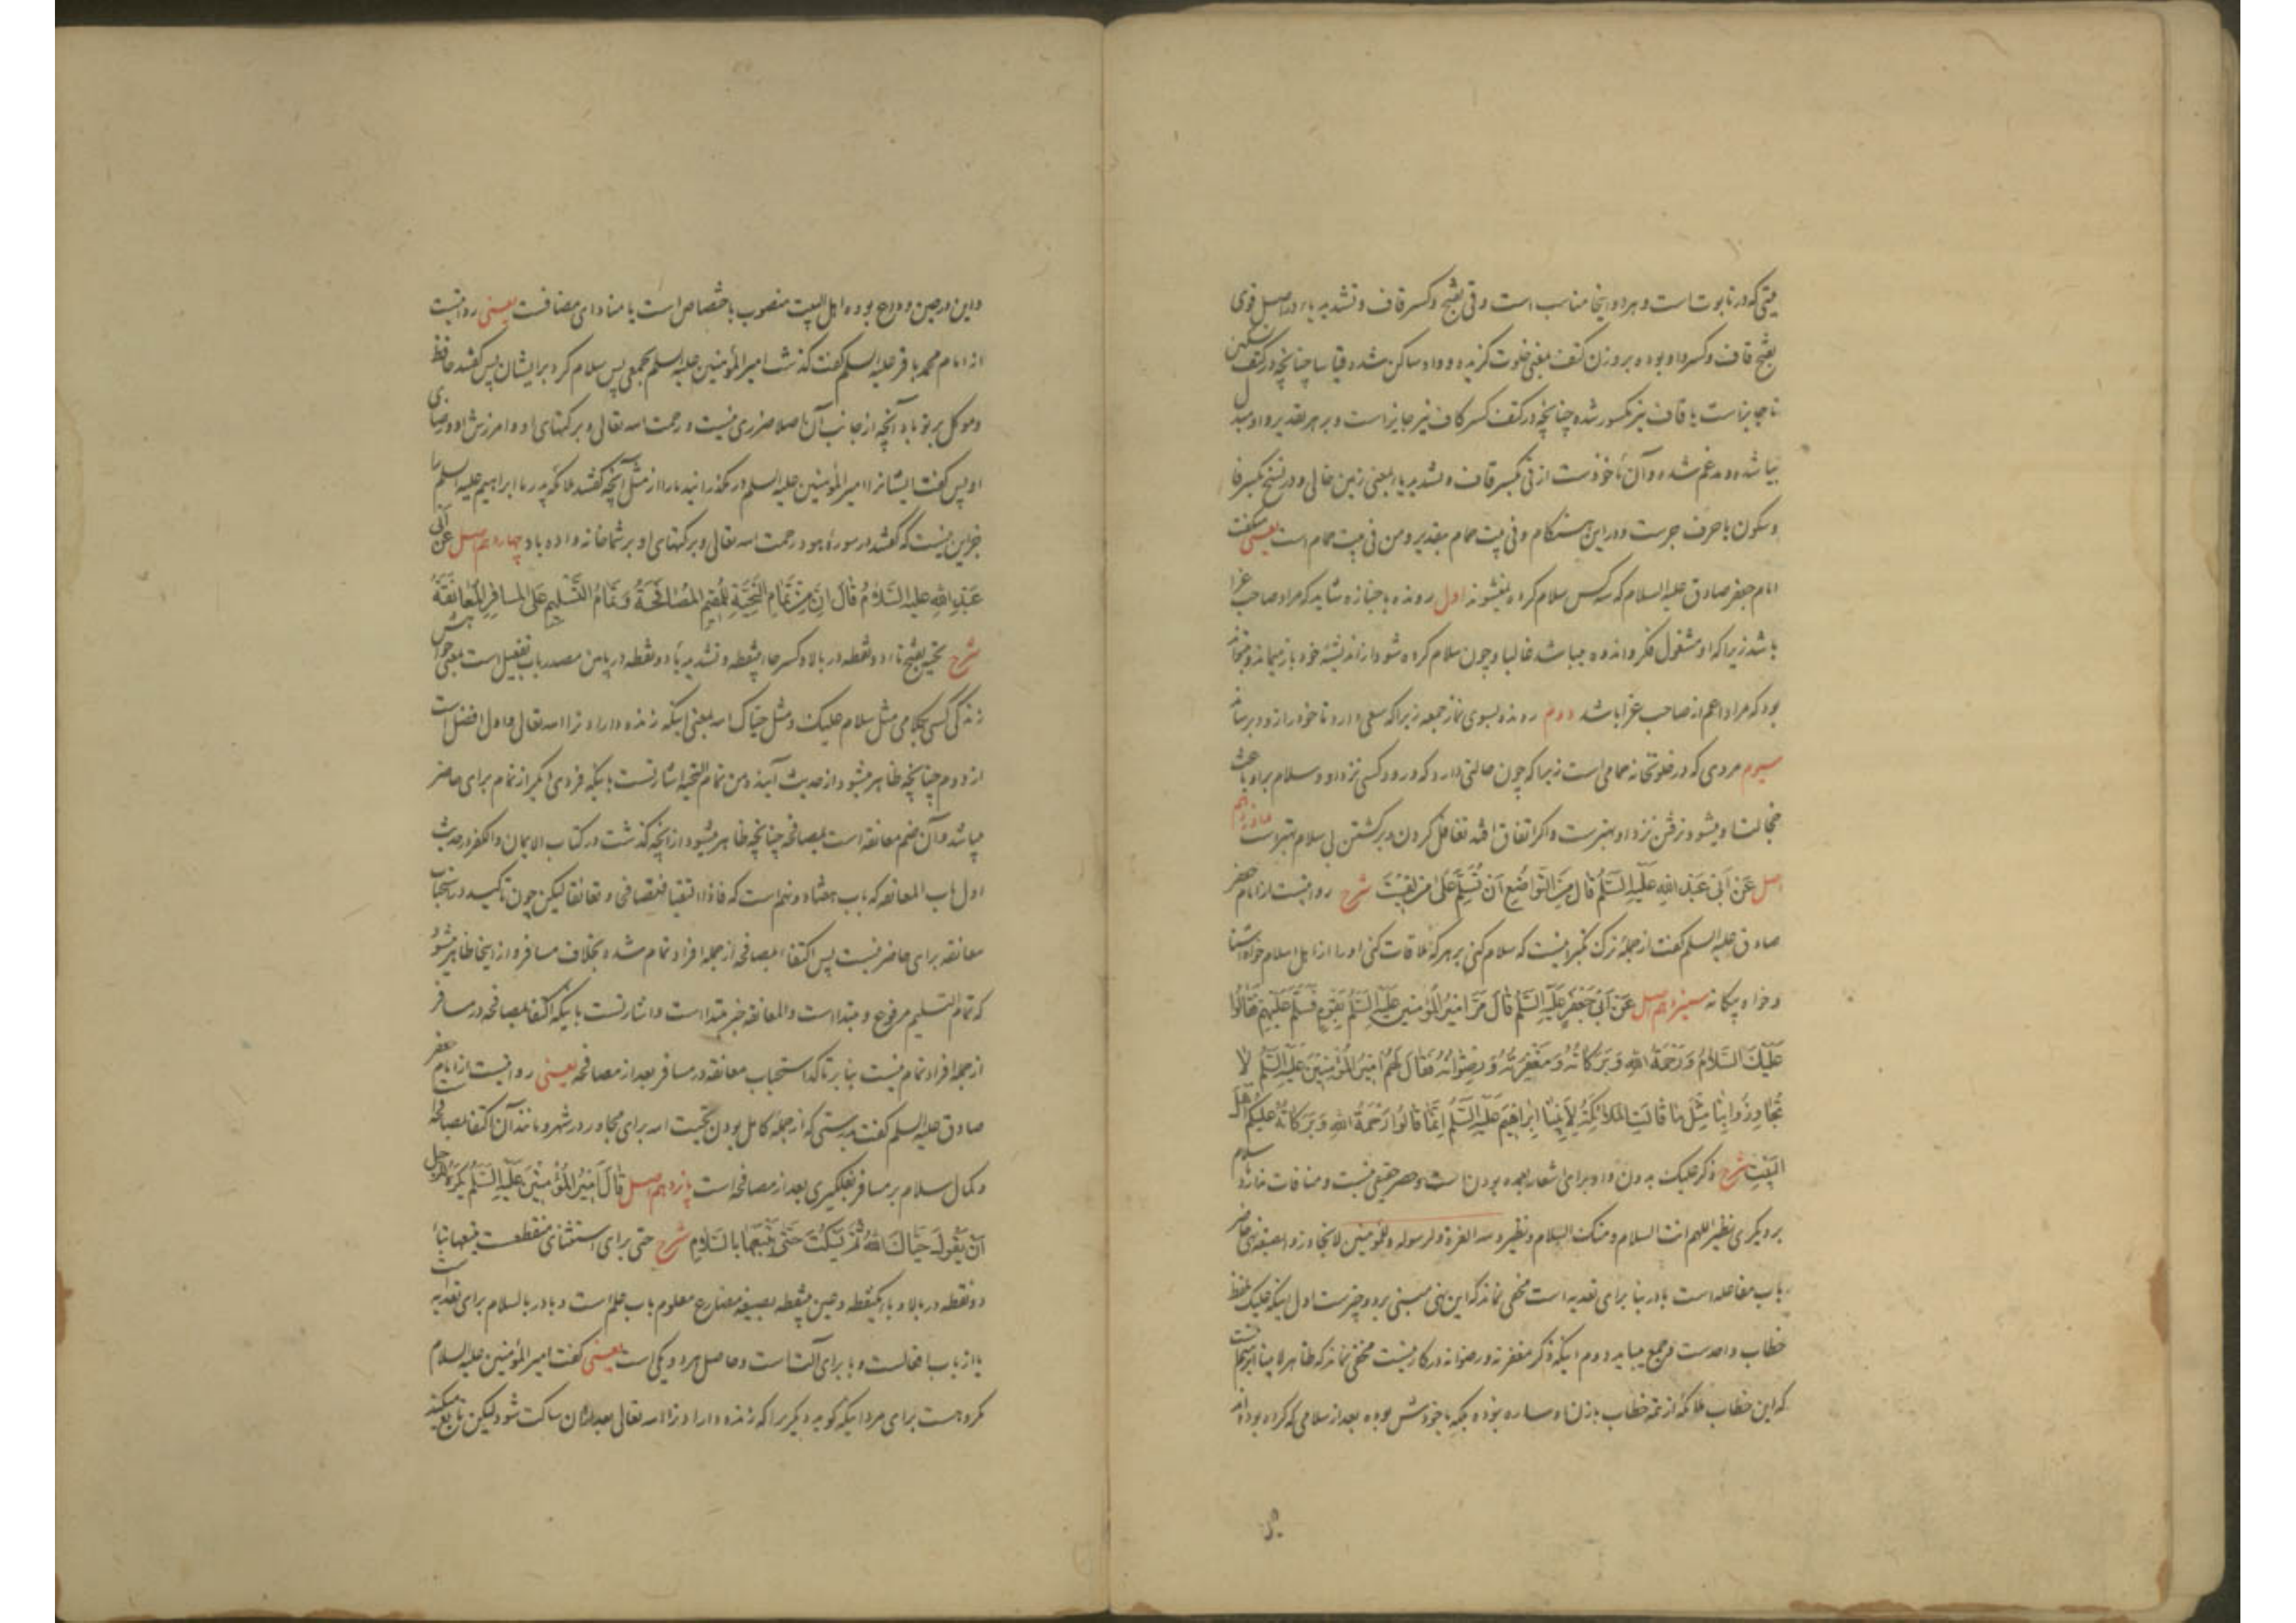 میتی که در تابوت است و هر دو اینجا مناسب است وقی بفتح و کسر قاف و تشدید یاء در اصل قوی
بفتح قاف و کسر واو بوده بر وزن کتف بمعنی خلوت گزیده و واو ساکن شده قیاسا چنانچه در کتف تسکین
تا جایز است یا قاف نیز مکسور شده چنانچه در کتف کسر کاف نیز جایز است و بر هر تقدیر واو مبدل
بیا شده و مدغم شده و آن مأخوذست از قی بکسر قاف و تشدید یا بمعنی زمین خالی و در نسخ بکسر فا
و سکون یا حرف جرست و در این هنگام و فی بیت حمام بتقدیر و من فی بیت حمام است یعنی گفت
امام جعفر صادق علیه السلام که سه کس سلام کرده نمیشوند اول رونده با جنازه شاید که مراد صاحب عزا
باشد زیرا که او مشغول فکر و اندوه میباشد غالبا و چون سلام کرده شود از اندیشه خود باز میماند و
بود که مراد اعم از صاحب عزا باشد دوم رونده بسوی نماز جمعه زیرا که سعی دارد تا خود را زود برساند
سیوم مردی که در خلوتخانه حمامی است زیرا که چون حالتی دارد که ورود کسی نزد او و سلام بر او باعث
خجالت او میشود نرفتن نزد او بهترست و اگر اتفاق افتد تغافل کردن و برگشتن بی سلام بهتر است دوازدهم
اصل عَنْ اَبی عَبْدِ اللهِ عَلَیْهِ السَّلَمُ قالَ مِنَ التَّواضُعِ اَنْ تُسَلِّمَ عَلیٰ مَنْ لَقیْتَ شرح روایتست از امام جعفر
صادق علیه السلم گفت از جمله ترک تکبر اینست که سلام کنی بر هر که ملاقات کنی او را از اهل اسلام خواه آشنا
و خواه بیگانه سیزدهم اصل عَنْ اَبی جَعْفَرٍ عَلَیْهِ السَّلَمُ قالَ مَرَّ اَمیرُ الْمُؤْمِنینَ عَلَیْهِ السَّلَمُ بِقَوْمٍ فَسَلَّمَ عَلَیْهِمْ فَقالُوا
عَلَیْکَ السَّلامُ وَ رَحْمَةُ اللهِ وَ بَرَکاتُهُ وَ مَغْفِرَتُهُ وَ رِضْوانُهُ فَقالَ لَهُمْ اَمیرُ الْمُؤْمِنینَ عَلَیْهِ السَّلَمُ لا
تُجاوِزُوا بِنا مِثْلَ ما قالَتِ المَلائِکَةُ لِاَبینا اِبْراهیمَ عَلَیْهِ السَّلَمُ اِنَّما قالُوا رَحْمَةُ اللهِ وَ بَرَکاتُهُ عَلَیْکُمْ اَهْلَ
البَیْتِ شرح ذکر علیک بدون واو برای اشعار بعمده بودن است و حصر حقیقی نیست و منافات ندارد سلام
بر دیگری نظیر اللهم انت السلام و منک السلام و نظیر و لله العزة و لرسوله و للمؤمنین لا تجاوزوا بصیغه نهی حاضر
باب مفاعله است با در بنا برای تعدیه است مخفی نماند که این نهی مبنی بر دو چیز ست اول اینکه علیک لفظ
خطاب واحدست و جمع میباید دوم اینکه ذکر مغفرته و رضوانه در کار نیست مخفی نماند که ظاهر لابینا ابرهیم آنست
که این خطاب ملائکه از تتمه خطاب با زن او ساره نبوده بلکه با خودش بوده بعد از سلامی که کرده بوده اند
و این در حین وداع بوده اهل البیت منصوب باختصاص است یا منادای مضافست یعنی روایتست
از امام محمد باقر علیه السلم گفت گذشت امیر المؤمنین علیه السلم بجمعی پس سلام کرد بر ایشان پس گفتند حافظ
و موکل بر تو باد آنچه از جانب آن اصلا ضرری نیست و رحمت الله تعالی و برکتهای او و امرزش او و رضای
او پس گفت ایشانرا امیر المؤمنین علیه السلم در مگذرانید ما را از مثل آنچه گفتند ملائکه پدر ما ابراهیم علیه السلم را
جز این نیست که گفتند در سوره هود رحمت الله تعالی و برکتهای او بر شما خانه واده باد چهاردهم اصل عَنْ اَبی
عَبْدِ اللهِ عَلیهِ السَّلامُ قالَ اِنَّ مِنْ تَمامِ التَّحِیَّةِ لِلْمُقیمِ المُصافَحَةُ وَ تَمامُ التَّسْلیمِ عَلَی المُسافِرِ المُعانَقَةُ
شرح تحیه بفتح تاء دو نقطه در بالا و کسر حاء بینقطه و تشدید یاء دو نقطه در پایین مصدر باب تفعیل است بمعنی خواهش
زندگی کسی بکلامی مثل سلام علیک و مثل حیاک الله بمعنی اینکه زنده دارد ترا الله تعالی و اول افضل است
از دوم چنانچه ظاهر میشود از حدیث آینده و من تمام التحیه اشارتست باینکه فردی دیگر از تمام برای حاضر
میباشد و آن ضم معانقه است بمصافحه چنانچه ظاهر میشود از آنچه گذشت در کتاب الایمان و الکفر در حدیث
اول باب المعانقه که باب هفتاد و نهم است که فاذا التقیا فتصافحا و تعانقا لیکن چون تاکید در استحباب
معانقه برای حاضر نیست پس اکتفا بمصافحه از جمله افراد تمام شده بخلاف مسافر و از اینجا ظاهر میشود
که تمام التسلیم مرفوع و مبتدا است و المعانقة خبر مبتدا است و اشارتست باینکه اکتفا بمصافحه در مسافر
از جمله افراد تمام نیست بنا بر تاکد استحباب معانقه در مسافر بعد از مصافحه یعنی روایتست از امام جعفر
صادق علیه السلم گفت بدرستی که از جمله کامل بودن تحیت است برای مجاور در شهر و مانند آن اکتفا بمصافحه
و کمال سلام بر مسافر بغلگیری بعد از مصافحه است پانزدهم اصل قالَ اَمیرُ المُؤْمِنینَ عَلَیْهِ السَّلَمُ یُکْرَهُ لِلرَّجُلِ
اَنْ یَقُولَ حَیّاکَ اللهُ ثُمَّ یَسْکُتَ حَتّی یَتْبَعَها بِالسَّلامِ شرح حتی برای استثنای منقطعست یتبعها بتاء
دو نقطه در بالا و باء یکنقطه و عین بینقطه بصیغه مضارع معلوم باب علم است و با در بالسلام برای تعدیه است
یا از باب افعالست و با برای آلت است و حاصل هر دو یکی است یعنی گفت امیر المؤمنین علیه السلام
مکروهست برای مرد اینکه گوید دیگریرا که زنده دارد ترا الله تعالی بعد از آن ساکت شود لیکن تابع میکند